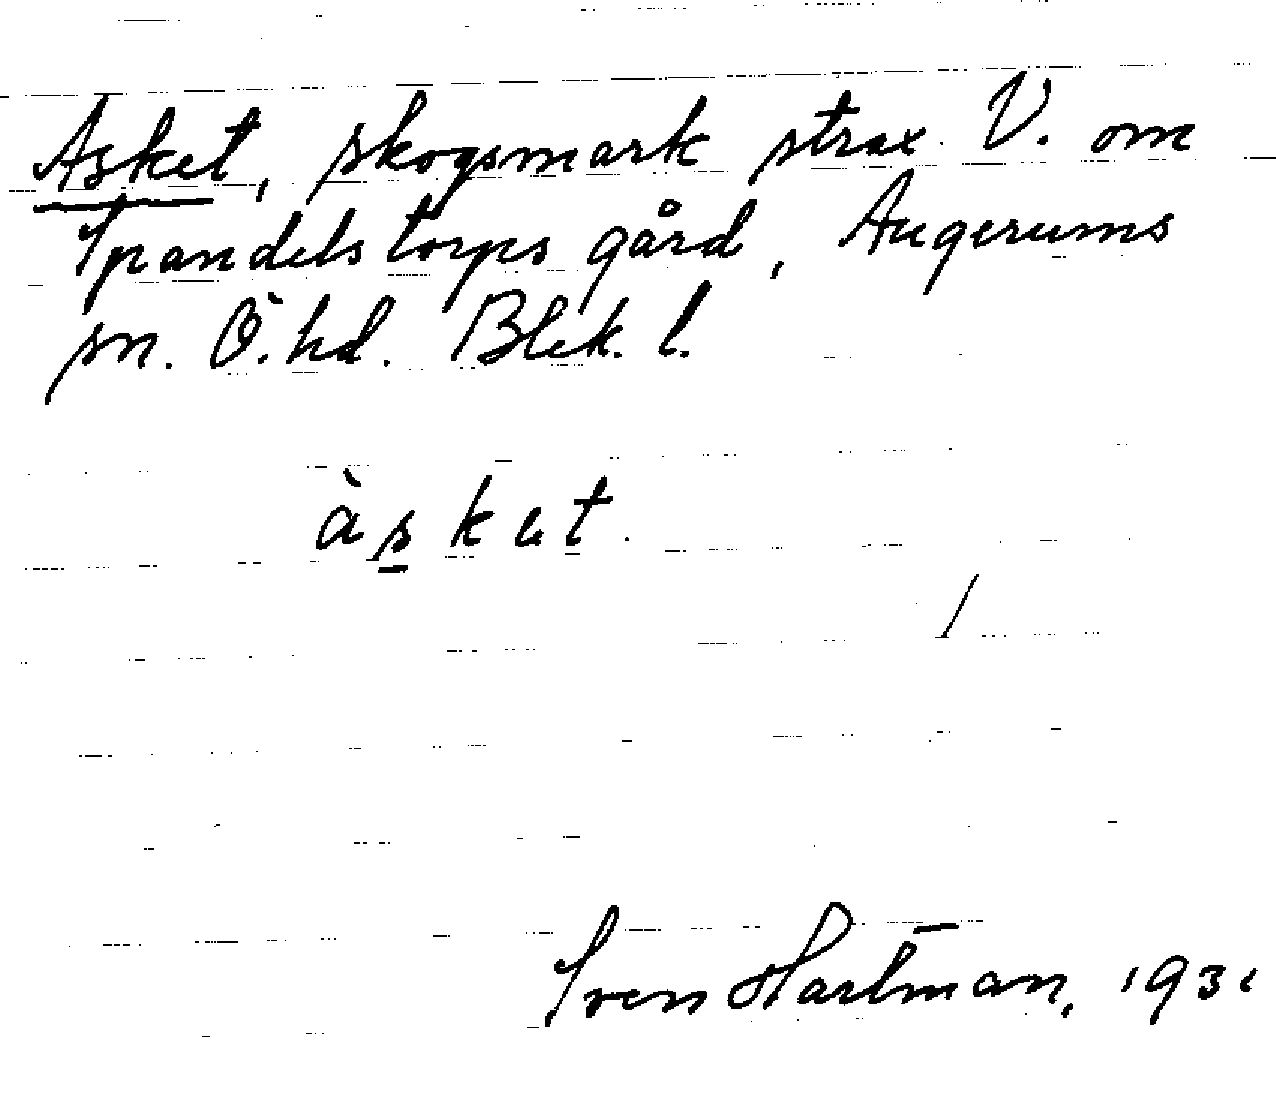 Asket, skogsmark strax V. om
Spandelstorps gård, Augerums
sn. Ö. hd. Blek. l.
àsket.
/
Sven Hartman, 1931